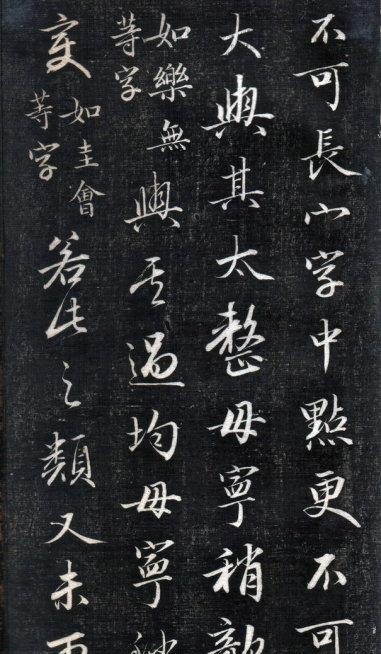 不可長宀字中點更不可
大與其太整毋寧稍欹
如樂無
等字
與其過均毋寧稍
变
如圭會
等字
若此之類又未